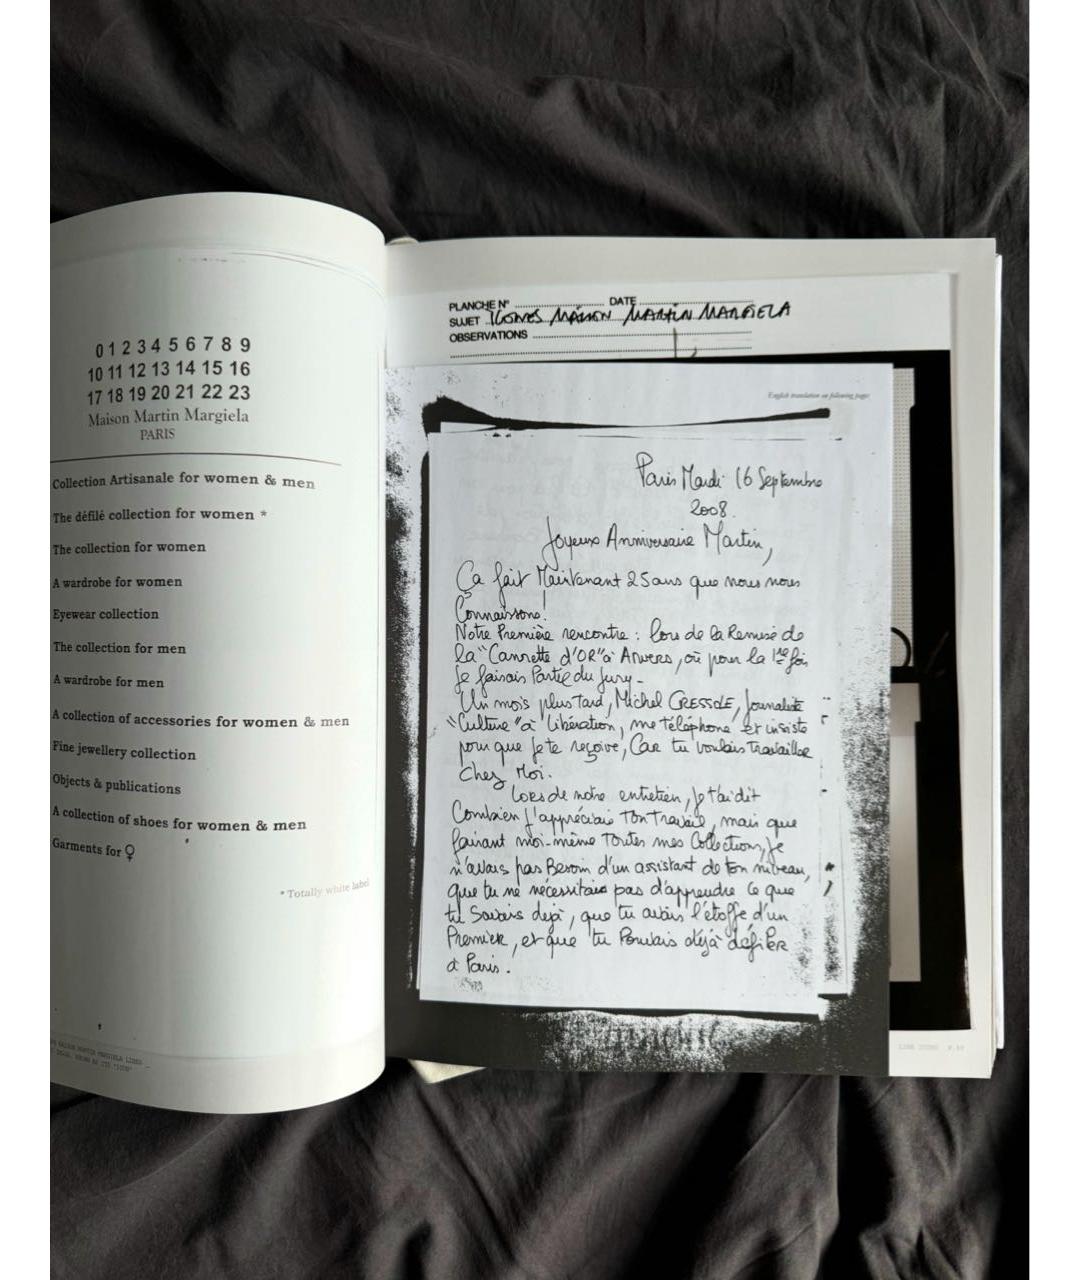 0 1 2 3 4 5 6 7 8 9
10 11 12 13 14 15 16
17 18 19 20 21 22 23
Maison Martin Margiela
PARIS
Collection Artisanale for women & men
The défilé collection for women *
The collection for women
A wardrobe for women
Eyewear collection
The collection for men
A wardrobe for men
A collection of accessories for women & men
Fine jewellery collection
Objects & publications
A collection of shoes for women & men
Garments for ♀
* Totally white label
MAISON MARTIN MARGIELA LINES
PLANCHE N° DATE
SUJET ICONES MAISON MARTIN MARGIELA
OBSERVATIONS
English translation on following pages
Paris Mardi 16 Septembre
2008.
Joyeux Anniversaire Martin,
Ça fait Maintenant 25 ans que nous nous
Connaissons!
Notre Première rencontre : lors de la Remise de
la "Cannette d'OR" à Anvers, où pour la 1ère fois
Je faisais Partie du Jury -
Un mois plus tard, Michel CRESSOLE, Journaliste
"Culture" à Libération, me téléphone et insiste
pour que Je te reçoive, Car tu voulais Travailler
Chez Moi.
Lors de notre entretien, Je t'ai dit
Combien J'appréciais Ton Travail, mais que
faisant moi-même Toutes mes Collections, Je
n'avais pas Besoin d'un assistant de ton niveau,
que tu ne nécessitais pas d'apprendre Ce que
tu Savais déjà, que tu avais l'étoffe d'un
Premier, et que tu Pouvais déjà défiler
à Paris.